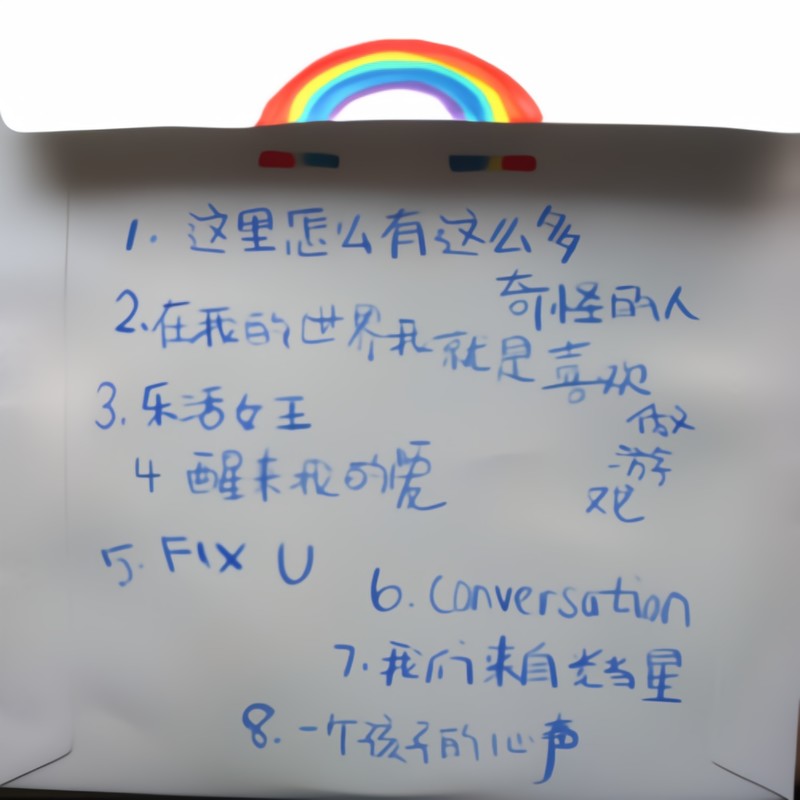 1. 这里怎么有这么多
奇怪的人
2.在我的世界我就是喜欢
做
游
戏
3.乐活女王
4 醒来我的爱
5. FIX U
6. Conversation
7.我们来自光当星
8.一个孩子的心声